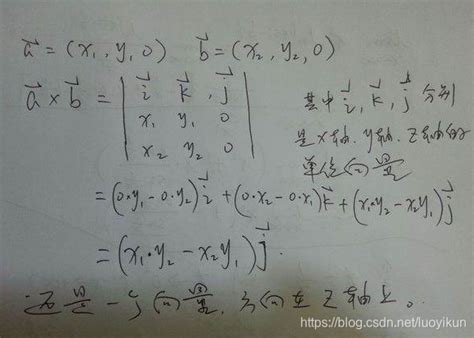 a⃗ = (x₁, y₁, 0)  b⃗ = (x₂, y₂, 0)
a⃗ × b⃗ = | i⃗ k⃗ j⃗ |
| x₁ y₁ 0 |
| x₂ y₂ 0 |
其中 i⃗, k⃗, j⃗ 分别
是x轴、y轴、z轴的
单位向量
= (0·y₁ - 0·y₂) i⃗ + (0·x₂ - 0·x₁) k⃗ + (x₁·y₂ - x₂y₁) j⃗
= (x₁·y₂ - x₂y₁) j⃗.
还是一个向量,方向在z轴上。
https://blog.csdn.net/luoyikun